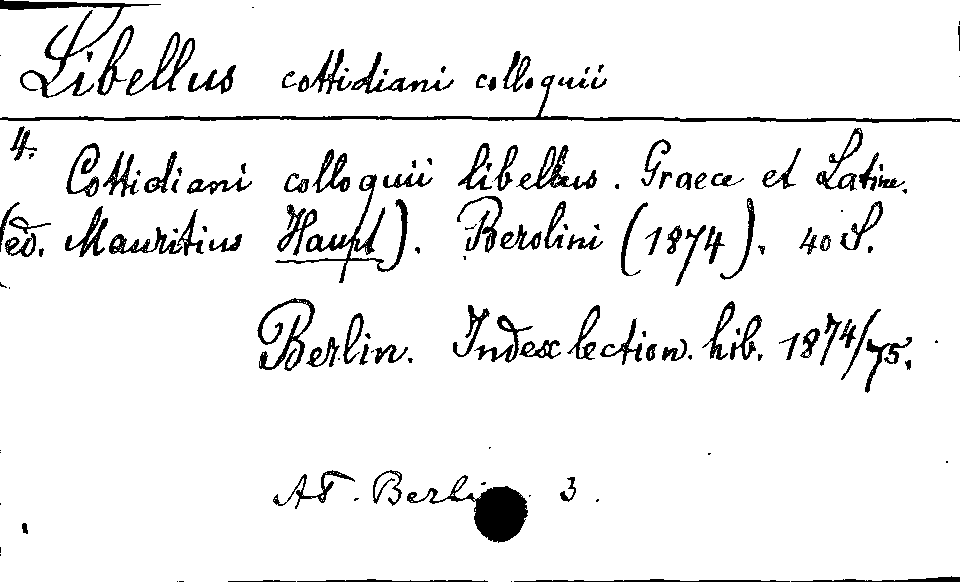 Libellus cottidiani colloquii
4.
Cottidiani colloquii libellus. Graece et Latine.
(ed. Mauritius Haupt). Berolini (1874). 40 S.
Berlin. Index lection. hib. 1874/75.
Berlin 3.